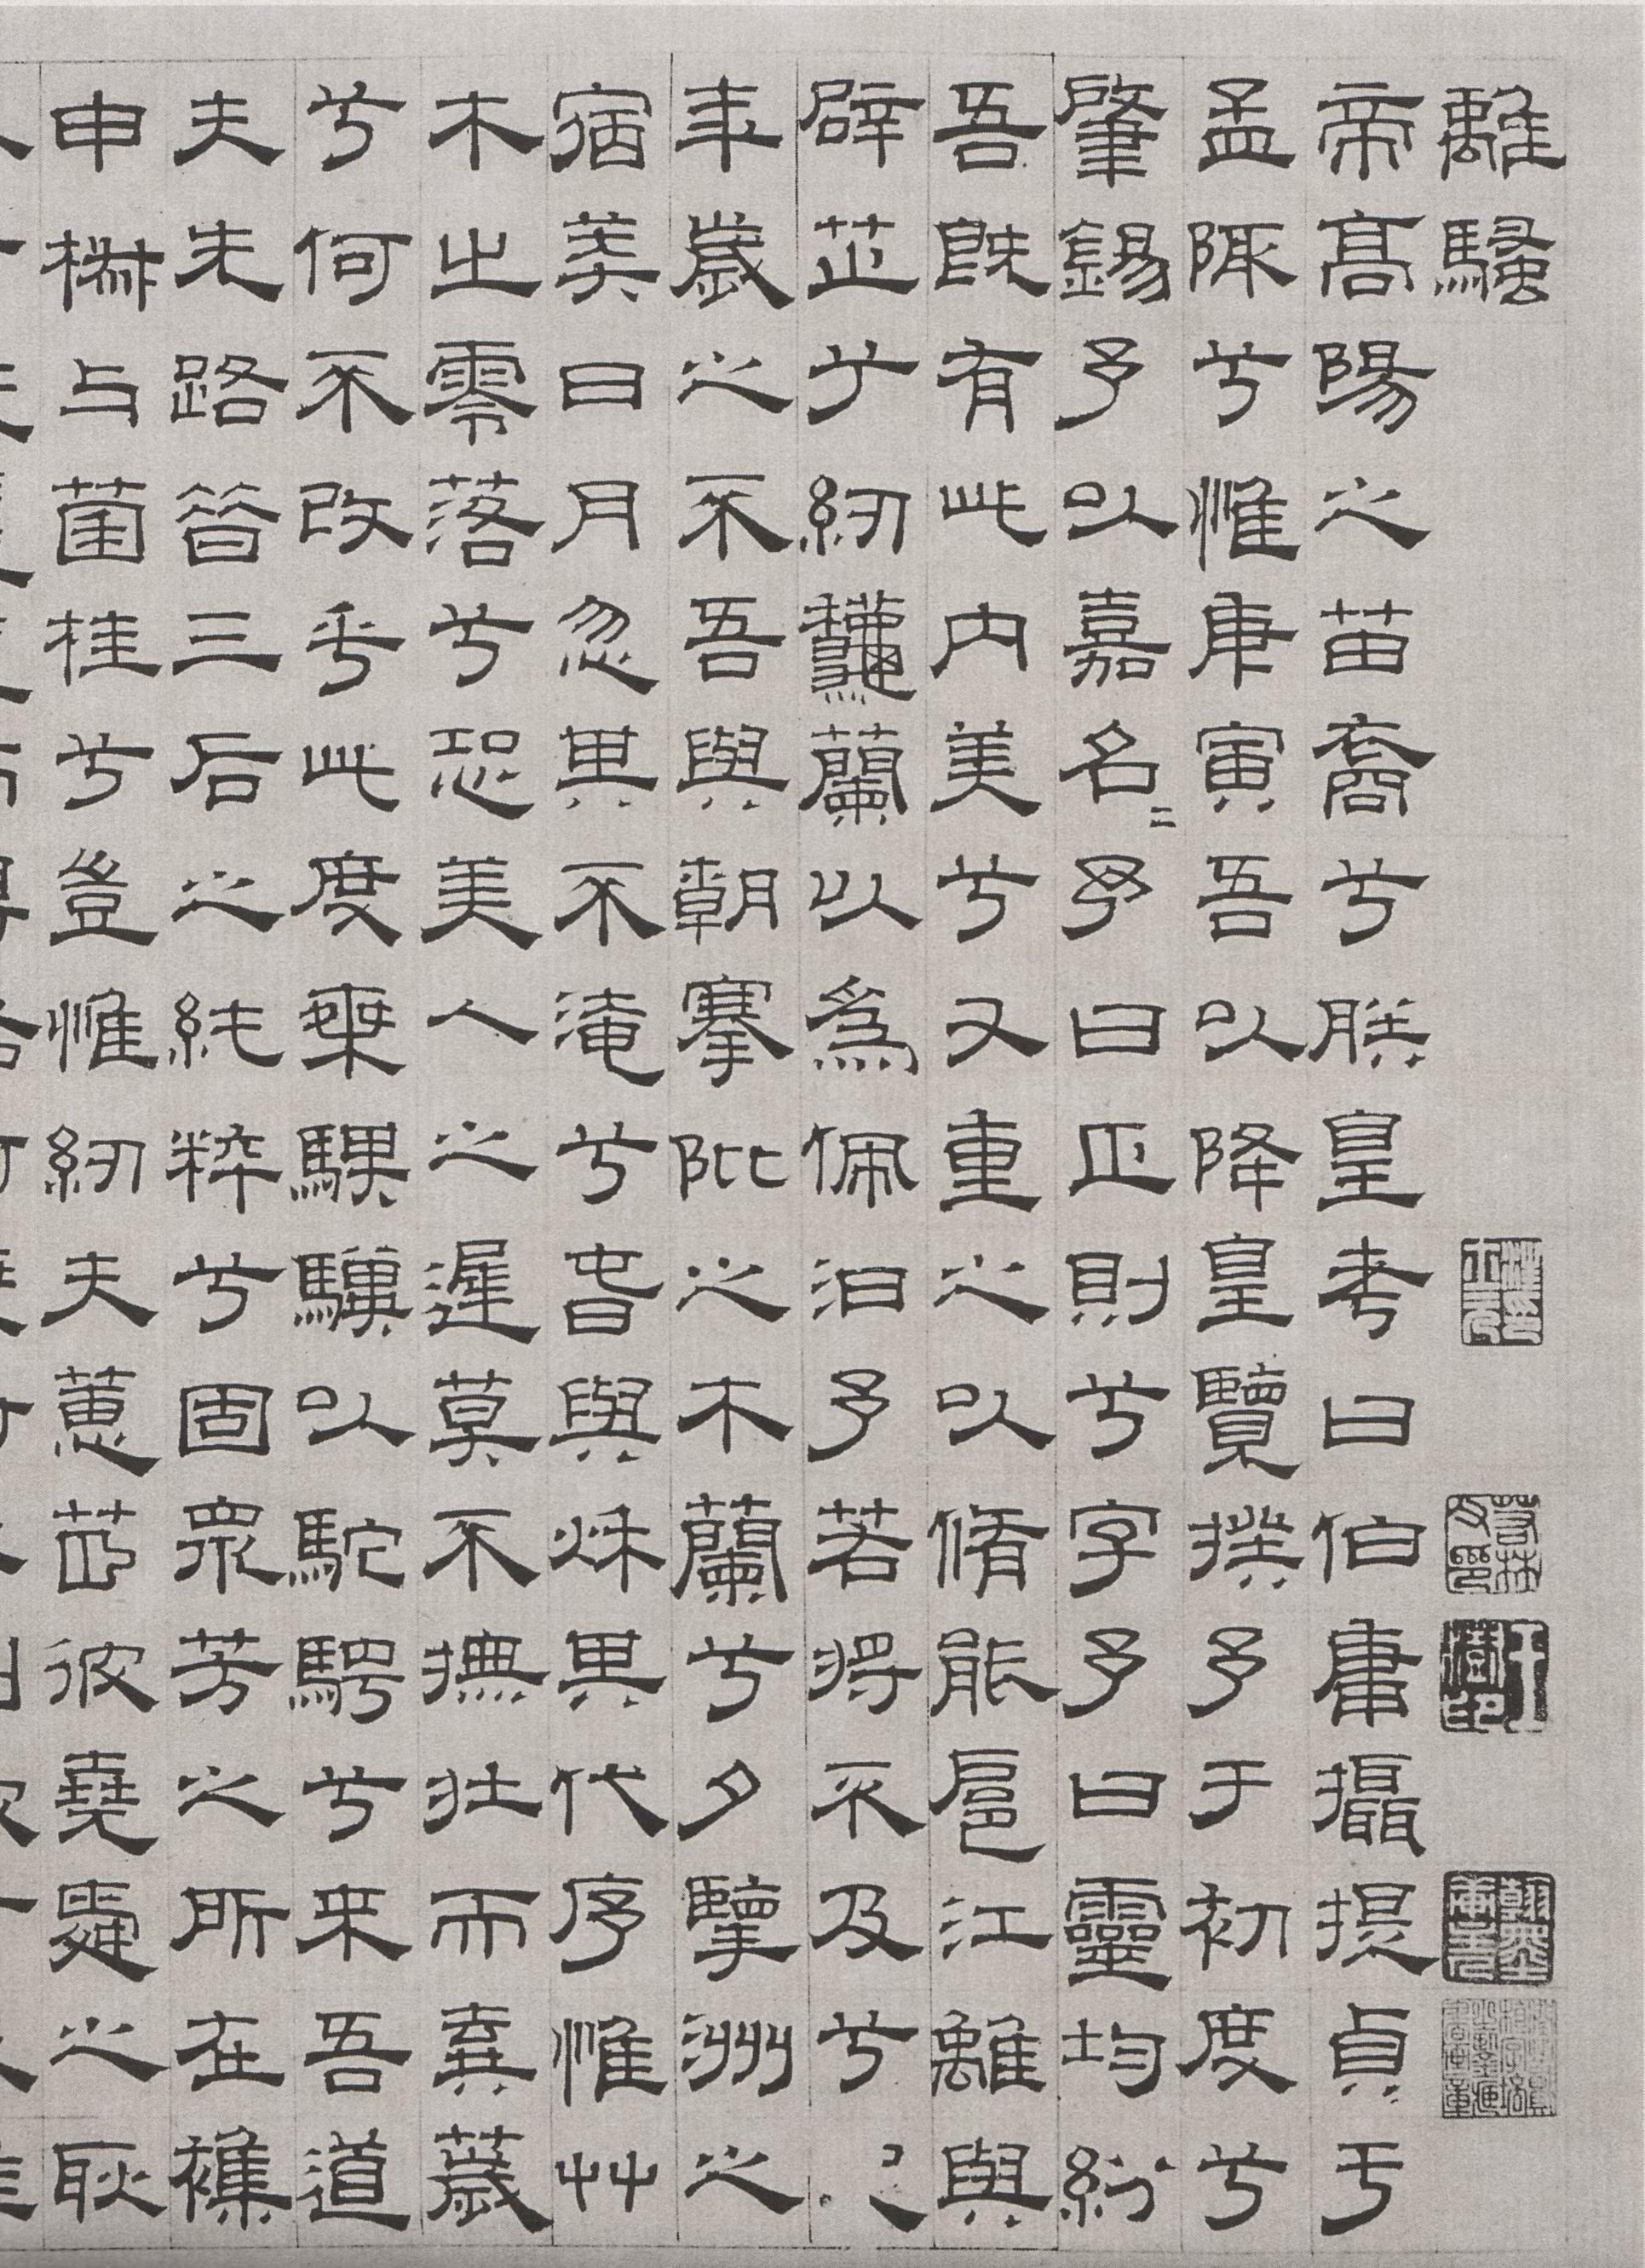 離騷
帝高陽之苗裔兮朕皇考曰伯庸攝提貞于
孟陬兮惟庚寅吾以降皇覽揆予于初度兮
肇錫予以嘉名〻予曰正則兮字予曰靈均紛
吾既有此内美兮又重之以脩能扈江離與
辟芷兮紉龝蘭以爲佩汩予若將不及兮
年歲之不吾與朝搴阰之木蘭兮夕擥洲之
宿莽日月忽其不淹兮旾與秌其代序惟艸
木之零落兮恐美人之遲莫不撫壯而棄薉
兮何不改乎此度椉騏驥以駝騁兮来吾道
夫先路昔三后之純粹兮固眾芳之所在襍
申椒与菌桂兮豈惟紉夫蕙茝彼堯舜之耿